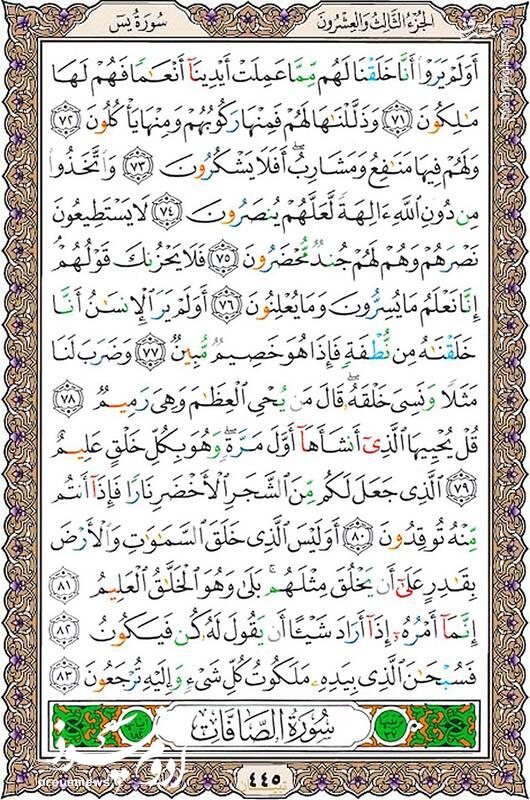 الجزء الثالث والعشرون
سورة يس
أَوَلَمْ يَرَوْا۟ أَنَّا خَلَقْنَا لَهُم مِّمَّا عَمِلَتْ أَيْدِينَآ أَنْعَـٰمًا فَهُمْ لَهَا
مَـٰلِكُونَ ﴿٧١﴾ وَذَلَّلْنَـٰهَا لَهُمْ فَمِنْهَا رَكُوبُهُمْ وَمِنْهَا يَأْكُلُونَ ﴿٧٢﴾
وَلَهُمْ فِيهَا مَنَـٰفِعُ وَمَشَارِبُ ۖ أَفَلَا يَشْكُرُونَ ﴿٧٣﴾ وَٱتَّخَذُوا۟
مِن دُونِ ٱللَّهِ ءَالِهَةً لَّعَلَّهُمْ يُنصَرُونَ ﴿٧٤﴾ لَا يَسْتَطِيعُونَ
نَصْرَهُمْ وَهُمْ لَهُمْ جُندٌ مُّحْضَرُونَ ﴿٧٥﴾ فَلَا يَحْزُنكَ قَوْلُهُمْ ۘ
إِنَّا نَعْلَمُ مَا يُسِرُّونَ وَمَا يُعْلِنُونَ ﴿٧٦﴾ أَوَلَمْ يَرَ ٱلْإِنسَـٰنُ أَنَّا
خَلَقْنَـٰهُ مِن نُّطْفَةٍ فَإِذَا هُوَ خَصِيمٌ مُّبِينٌ ﴿٧٧﴾ وَضَرَبَ لَنَا
مَثَلًا وَنَسِىَ خَلْقَهُۥ ۖ قَالَ مَن يُحْىِ ٱلْعِظَـٰمَ وَهِىَ رَمِيمٌ ﴿٧٨﴾
قُلْ يُحْيِيهَا ٱلَّذِىٓ أَنشَأَهَآ أَوَّلَ مَرَّةٍ ۖ وَهُوَ بِكُلِّ خَلْقٍ عَلِيمٌ
﴿٧٩﴾ ٱلَّذِى جَعَلَ لَكُم مِّنَ ٱلشَّجَرِ ٱلْأَخْضَرِ نَارًا فَإِذَآ أَنتُم
مِّنْهُ تُوقِدُونَ ﴿٨٠﴾ أَوَلَيْسَ ٱلَّذِى خَلَقَ ٱلسَّمَـٰوَٰتِ وَٱلْأَرْضَ
بِقَـٰدِرٍ عَلَىٰٓ أَن يَخْلُقَ مِثْلَهُم ۚ بَلَىٰ وَهُوَ ٱلْخَلَّـٰقُ ٱلْعَلِيمُ ﴿٨١﴾
إِنَّمَآ أَمْرُهُۥٓ إِذَآ أَرَادَ شَيْـًٔا أَن يَقُولَ لَهُۥ كُن فَيَكُونُ ﴿٨٢﴾
فَسُبْحَـٰنَ ٱلَّذِى بِيَدِهِۦ مَلَكُوتُ كُلِّ شَىْءٍ وَإِلَيْهِ تُرْجَعُونَ ﴿٨٣﴾
سُورَةُ الصَّافَّات
٤٤٥